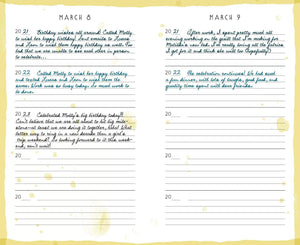 MARCH 8
20 21 Birthday wishes all around. Called Molly
to wish her happy birthday. Sent emails to
and Leon to wish them happy birthday as well. For
that we are unable to see each other in person
to celebrate...
20 22 Called Molly to wish her happy birthday
and texted and Leon to wish them the
same. Work was so busy today. So must work to
be done.
20 23 Celebrated Molly's big birthday today!!!
Can't believe that we are all about to hit big mile-
stone—at least we are doing it together, haha! What
better way to ring in a new decade than a girl's
trip weekend! So looking forward to it this week-
end, can't wait!
20
20
MARCH 9
20 21 After work, I spent pretty much all
evening working on the quilt that I'm making for
new bed. I'm really loving all the fabrics
I got for it and think she will too (hopefully)!
20 22 The celebration continues! We had such
a fun dinner, with lots of laughs, good food, and
quality time spent with dear friends.
20
20
20